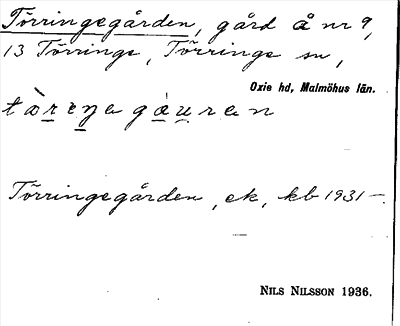 Törringegården, gård å nr 9,
13 Törringe, Törringe sn,
Oxie hd, Malmöhus län.
Törringegården, ek, kb 1931–.
NILS NILSSON 1936.